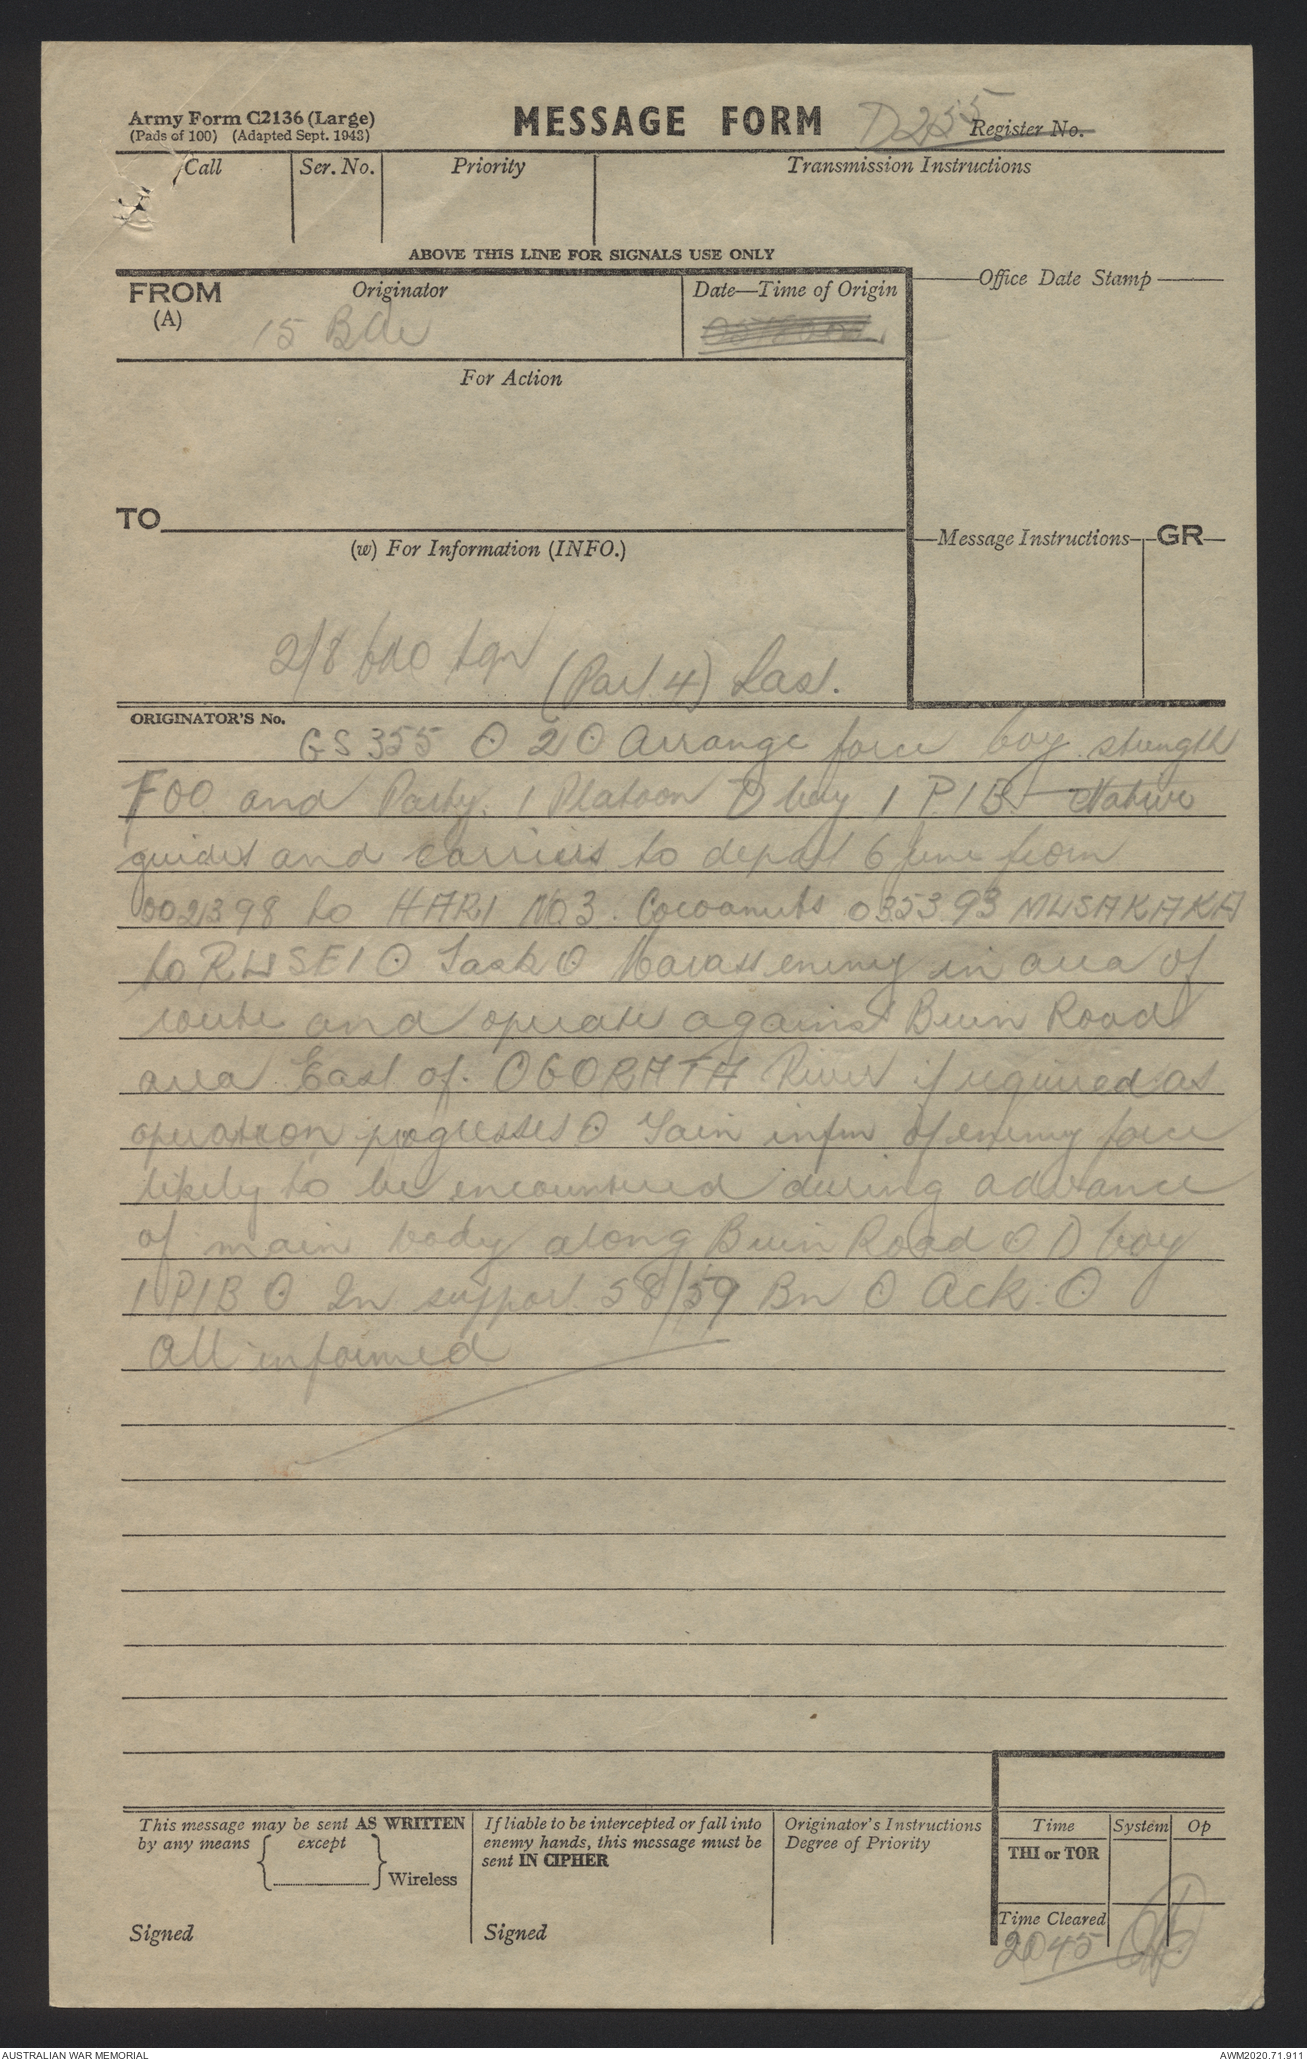 Army Form C2136 (Large)
(Pads of 100) (Adapted Sept. 1943)
MESSAGE FORM
D255
Register No.
Call
Ser. No.
Priority
Transmission Instructions
ABOVE THIS LINE FOR SIGNALS USE ONLY
FROM
(A)
Originator
15 Bde
Date—Time of Origin
Office Date Stamp
For Action
TO
(w) For Information (INFO.)
Message Instructions
GR
2/8 Cdo Sqn (Part 4) Last.
ORIGINATOR'S No.
GS355 O 20 Arrange force Coy strength
FOO and Party. 1 Platoon D Coy 1 P.I.B. Native
guides and carriers to depart 6 June from
002398 to HARI NO3. Cocoanuts 035393 MUSAKAKA
to RUSEI O Task O Harass enemy in area of
route and operate against Buin Road
area East of OGORATA River if required as
operation progresses O Gain infm of enemy force
likely to be encountered during advance
of main body along Buin Road O D Coy
1 PIB O In support 58/59 Bn O Ack O
All informed
This message may be sent AS WRITTEN
by any means
except
Wireless
Signed
If liable to be intercepted or fall into
enemy hands, this message must be
sent IN CIPHER
Signed
Originator's Instructions
Degree of Priority
Time
System
Op
THI or TOR
Time Cleared
2045
AUSTRALIAN WAR MEMORIAL
AWM2020.71.911